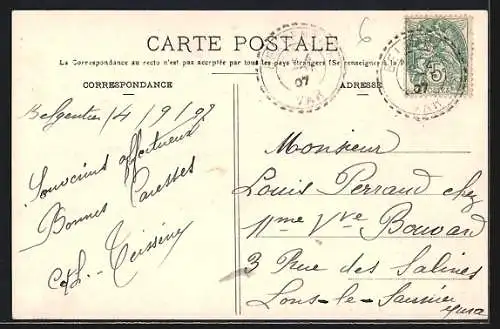 CARTE POSTALE
La Correspondance au recto n'est pas acceptée par tous les pays étrangers (Se renseigner à la
CORRESPONDANCE
ADRESSE
6
07
VAR
07
VAR
5
Belgentier 14/9/07
Souvenirs affectueux
Bonnes Caresses
Teissère
Monsieur
Louis Perraud chez
Mme Vve Bouvard
3 Rue des Salines
Lons-le-Saunier
Jura